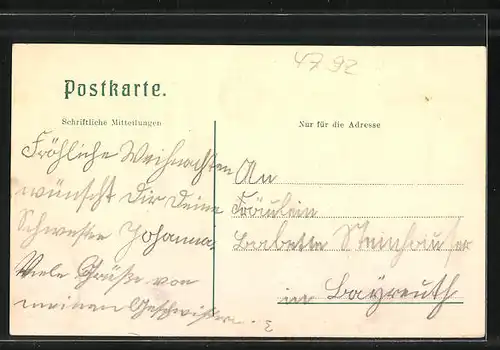 4792
Postkarte.
Schriftliche Mitteilungen
Nur für die Adresse
Fröhliche Weihnachten
wünscht Dir Deine
Schwester Johanna.
Viele Grüße von
meinen Geschwistern.
An
Fräulein
Babette Steinhäuser
in Bayreuth